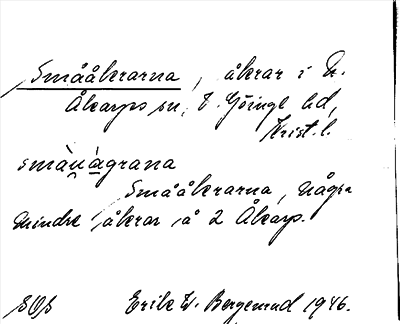 Smååkrarna, åkrar i N.
Åkarps sn, V. Göinge hd,
Krist. l.
småu̯ågrana
Smååkrarna, några
mindre åkrar å 2 Åkarp.
SOS Erik W. Bergemud 1946.